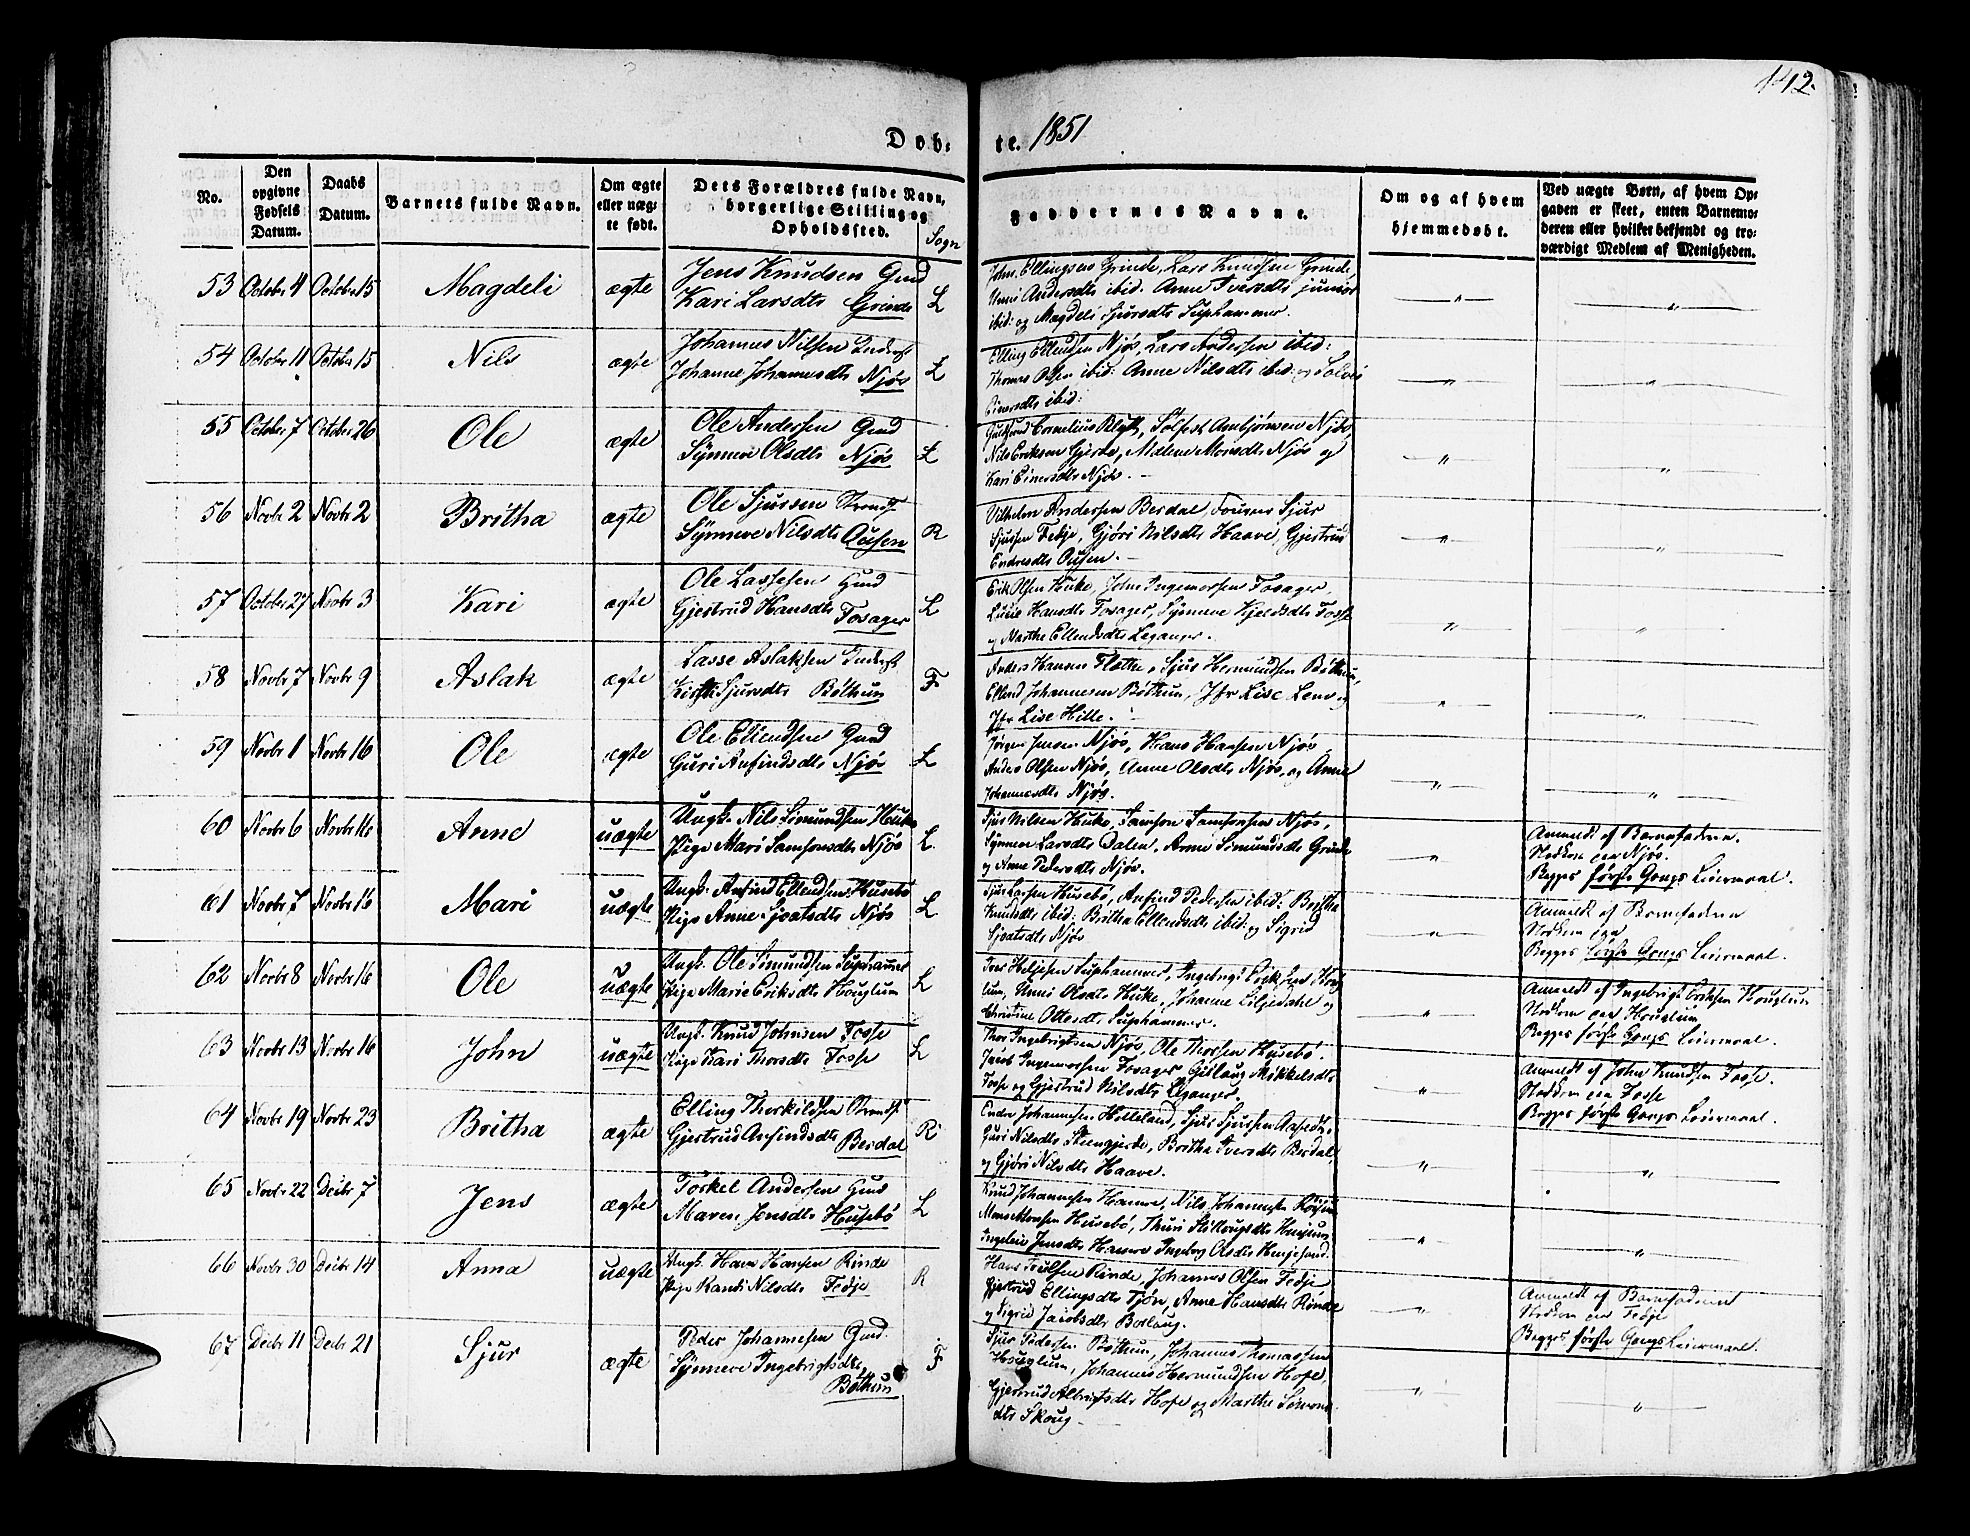 142.
Døb= te. 1851
No.
Den opgivne Fødsels Datum.
Daabs Datum.
Barnets fulde Navn.
Om ægte eller uæg= te født.
Dets Forældres fulde Navn, borgerlige Stilling og Opholdssted.
Sogn
Faddernes Navne.
Om og af hvem hjemmedøbt.
Ved uægte Børn, af hvem Op= gaven er skeet, enten Barnemo= deren eller hvilket bekjendt og tro= værdigt Medlem af Menigheden.
53 Octobr 4 Octobr 15 Magdeli ægte Jens Knudsen Gmd L
Kari Larsdtr Grinde
John Ellingsen Grinde, Lars Knudsen Grinde,
Unni Andersdtr ibid: Anne Iversdtr junior
ibid: og Magdeli Sjursdtr Suphammer.
54 Octobr 11 Octobr 15 Nils ægte Johannes Nilsen Inderst L
Johanne Johannesdtr Njøs
Elling Ellendsen Njøs, Lars Andersen ibid:
Thomas Olsen ibid: Anne Nilsdtr ibid: og Solvei
Einersdtr ibid:
55 Octobr 7 Octobr 26 Ole ægte Ole Andersen Gmd L
Synneve Olsdtr Njøs
Cornelius Blyt, Solfest Anbjørnsen Njøs,
Nils Eriksen Gjerde, Malene Monsdtr Njøs og
Kari Einersdtr Njøs.
56 Novbr 2 Novbr 2 Britha ægte Ole Sjursen Strands R
Synneve Nilsdtr Ousen
Vilhelm Andersen Berdal, Sjur
Sjursen Fedje, Gjøri Nilsdtr Haave, Gjertrud
Endresdtr Ousen.
57 Octobr 27 Novbr 3 Kari ægte Ole Lassesen Gmd L
Gjertrud Hansdtr Fosager
Erik Olsen Huke, John Ingemorsen Fosager,
Hansdtr Fosager, Synneve Kjeldsdtr Fosse
og Marthe Ellendsdtr Leganger.
58 Novbr 7 Novbr 9 Aslak ægte Lasse Aslaksen Inderst F
Kirsti Sjursdtr Bøthun
Anders Hansen Flathe, Sjur Hermundsen Bøthun,
Ellend Johannesen Bøthun, Jfr Lise Lem og
Jfr Lise Hille.
59 Novbr 1 Novbr 16 Ole ægte Ole Ellendsen Gmd L
Guri Anfindsdtr Njøs
Jørgen Jensen Njøs, Hans Hansen Njøs,
Anders Olsen Njøs, Anne Olsdtr Njøs, og Anne
Johannesdtr Njøs.
60 Novbr 6 Novbr 16 Anne uægte Ungk. Nils Simundsen Huke L
Pige Mari Samsonsdtr Njøs
Sjur Nilsen Huke, Samson Samsonsen Njøs,
Synneve Larsdtr Dalen, Anne Simundsdtr Grinde
og Anne Pedersdtr Njøs.
Anmeldt af Barnefaderen.
Njøs.
Begges første Gangs Leiermaal.
61 Novbr 7 Novbr 16 Mari uægte Ungk. Anfind Ellendsen Husebø L
Pige Anne Sjoatsdtr Njøs
Sjur Larsen Husebø, Anfind Pedersen ibid: Britha
Knudsdtr ibid: Britha Ellendsdtr ibid: og Sigrid
Sjoatsdtr Njøs
Anmeldt af Barnefaderen
Begges første Gangs Leiermaal.
62 Novbr 8 Novbr 16 Ole uægte Ungk. Ole Simundsen Suphammer L
Pige Marie Eriksdtr Houglum
Iver Heljesen Suphammer, Ingebrigt Eriksen Houg
lum, Unni Olsdtr Huke, Johanne Liljedahl og
Christine Ottesdtr Suphammer.
Anmeldt af Ingebrigt Eriksen Houglum
Houglum
Begges første Gangs Leiermaal.
63 Novbr 13 Novbr 16 John uægte Ungk. Knud Johnsen Fosse L
Pige Kari Thorsdtr Fosse
Thor Ingebrigtsen Njøs, Ole Thorsen Husebø.
Jacob Ingemorsen Fosager, Gudlaug Mikkelsdtr
Fosse og Gjertrud Nilsdtr Leganger.
Anmeldt af John Knudsen Fosse.
Fosse
Begges første Gangs Leiermaal.
64 Novbr 19 Novbr 23 Britha ægte Elling Therkildsen Strands R
Gjertrud Anfindsdtr Berdal
Endre Johannesen Helleland, Sjur Sjursen Aasedt,
Guri Nilsdtr Steengjerde, Britha Iversdtr Berdal,
og Gjøri Nilsdtr Haave.
65 Novbr 22 Decbr 7 Jens ægte Torkel Andersen Gmd L
Maren Jensdtr Husebø
Knud Johannesen Hamre, Nils Johannesen
Monsen Husebø, Thuri
Ingeleiv Jensdtr Hamre Ingeborg Olsdtr Henjesand.
66 Novbr 30 Decbr 14 Anna uægte Ungk. Hans Hansen Rinde R
Pige Randi Nilsdtr Fedje
Hans Rinde, Johannes Olsen Fedje
Gjertrud Ellingsdtr Tjøn, Anne Hansdtr Rinde
og Sigrid Jacobsdtr Borlaug.
Anmeldt af Barnefaderen
Fedje
Begges første Gangs Leiermaal.
67 Decbr 11 Decbr 21 Sjur ægte Peder Johannesen Gmd. F
Synneve Ingebrigtsdtr
Bøthun
Sjur Pedersen Bøthun, Johannes Thomassen
Houglum, Johannes Hermundsen Hope,
Gjertrud Albrigtsdtr Hope og Marthe Simons
dtr Skoug